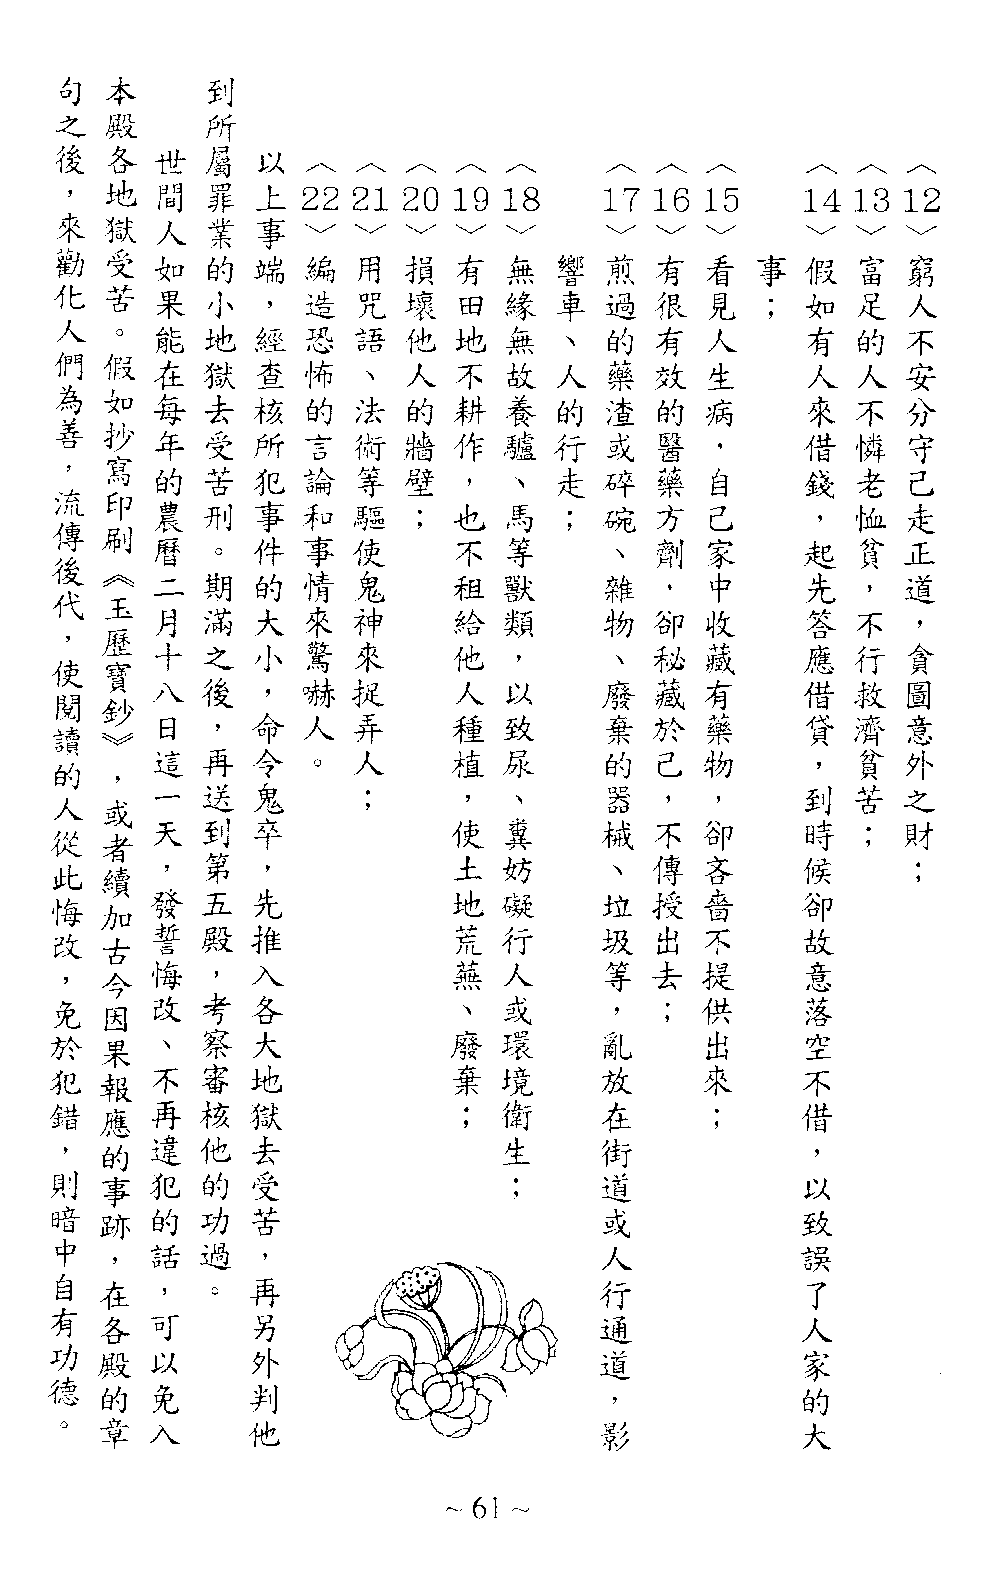 〈12〉窮人不安分守己走正道，貪圖意外之財；
〈13〉富足的人不憐老恤貧，不行救濟貧苦；
〈14〉假如有人來借錢，起先答應借貸，到時候卻故意落空不借，以致誤了人家的大
事；
〈15〉看見人生病，自己家中收藏有藥物，卻吝嗇不提供出來；
〈16〉有很有效的醫藥方劑，卻秘藏於己，不傳授出去；
〈17〉煎過的藥渣或碎碗、雜物、廢棄的器械、垃圾等，亂放在街道或人行通道，影
響車、人的行走；
〈18〉無緣無故養驢、馬等獸類，以致尿、糞妨礙行人或環境衛生；
〈19〉有田地不耕作，也不租給他人種植，使土地荒蕪、廢棄；
〈20〉損壞他人的牆壁；
〈21〉用咒語、法術等驅使鬼神來捉弄人；
〈22〉編造恐怖的言論和事情來驚嚇人。
以上事端，經查核所犯事件的大小，命令鬼卒，先推入各大地獄去受苦，再另外判他
到所屬罪業的小地獄去受苦刑。期滿之後，再送到第五殿，考察審核他的功過。
世間人如果能在每年的農曆二月十八日這一天，發誓悔改、不再違犯的話，可以免入
本殿各地獄受苦。假如抄寫印刷《玉歷寶鈔》，或者續加古今因果報應的事跡，在各殿的章
句之後，來勸化人們為善，流傳後代，使閱讀的人從此悔改，免於犯錯，則暗中自有功德。
~61~